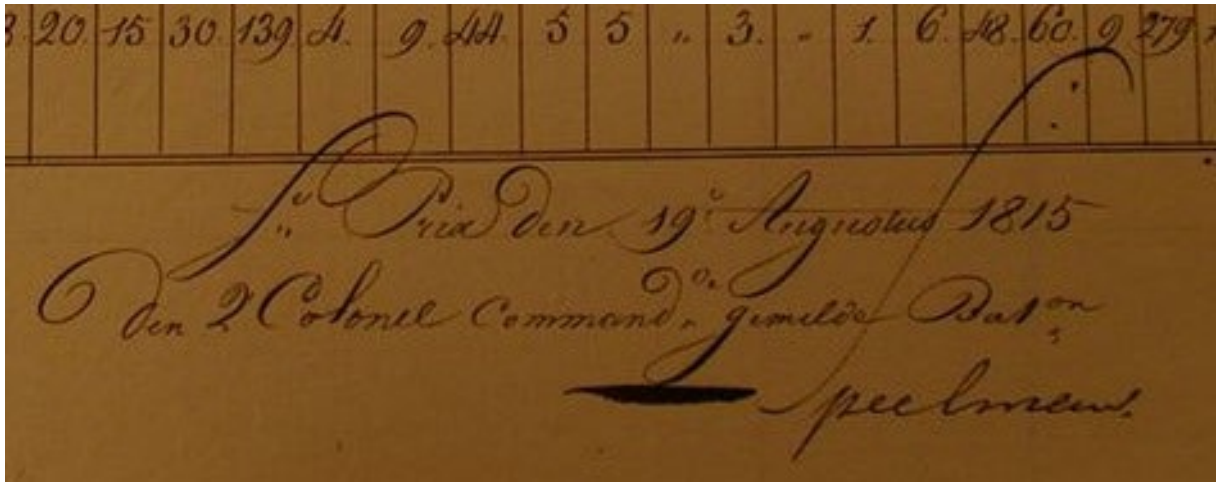 20. 15 30. 139. 4. 9. 44. 5 5 „ 3. „ 1. 6. 48. 60. 9 279
St. Prix den 19e Augustus 1815
den Lt Colonel Commandn do. gemelde Baton
Speelman